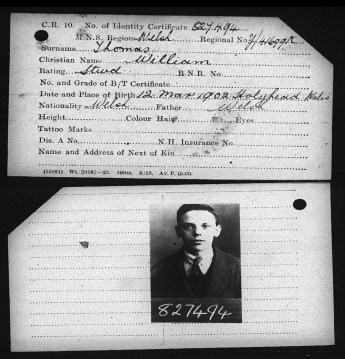 C.R. 10. No. of Identity Certificate 827494
M.N.S. Region Welsh Regional No.
Surname Thomas
Christian Name William
Rating Stwd R.N.R. No.
No. and Grade of B/T Certificate
Date and Place of Birth 12 Mar 1902 Holyhead Wales
Nationality Welsh Father Welsh
Height Colour Hair Eyes
Tattoo Marks
Dis. A No. N.H. Insurance No.
Name and Address of Next of Kin
827494